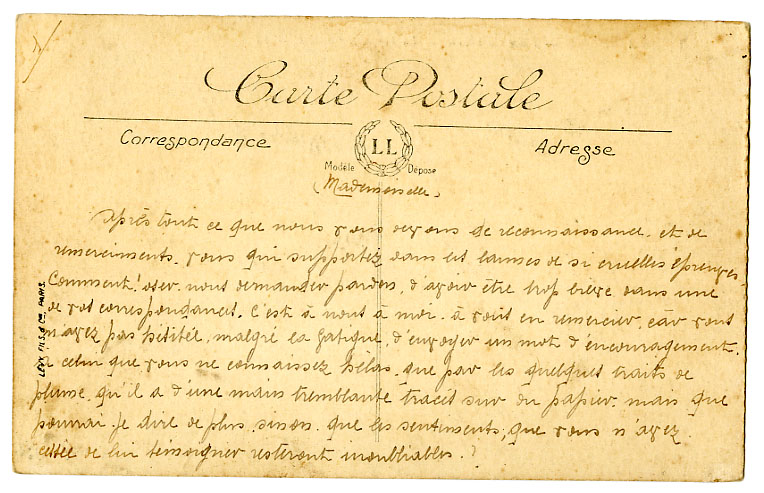 Carte Postale
Correspondance
LL
Adresse
Modèle Déposé
(Mademoiselle)
Après tout ce que nous vous devons de reconnaissance. et de
remerciments. vous qui supportez dans les larmes de si cruelles épreuves.
Comment! oser. nous demander pardon, d'avoir être trop brève dans une
de vos correspondances. C'est à nous à moi. à vous en remercier, car vous
n'avez pas hésitée, malgré la fatigue, d'envoyer un mot d'encouragement.
à celui que vous ne connaissez hélas, que par les quelques traits de
plume, qu'il a d'une main tremblante tracés sur du papier. mais que
pourrai je dire de plus, sinon. que les sentiments, que vous n'avez
cessée de lui témoigner resteront inoubliables.
LEVY FILS & Cie, PARIS